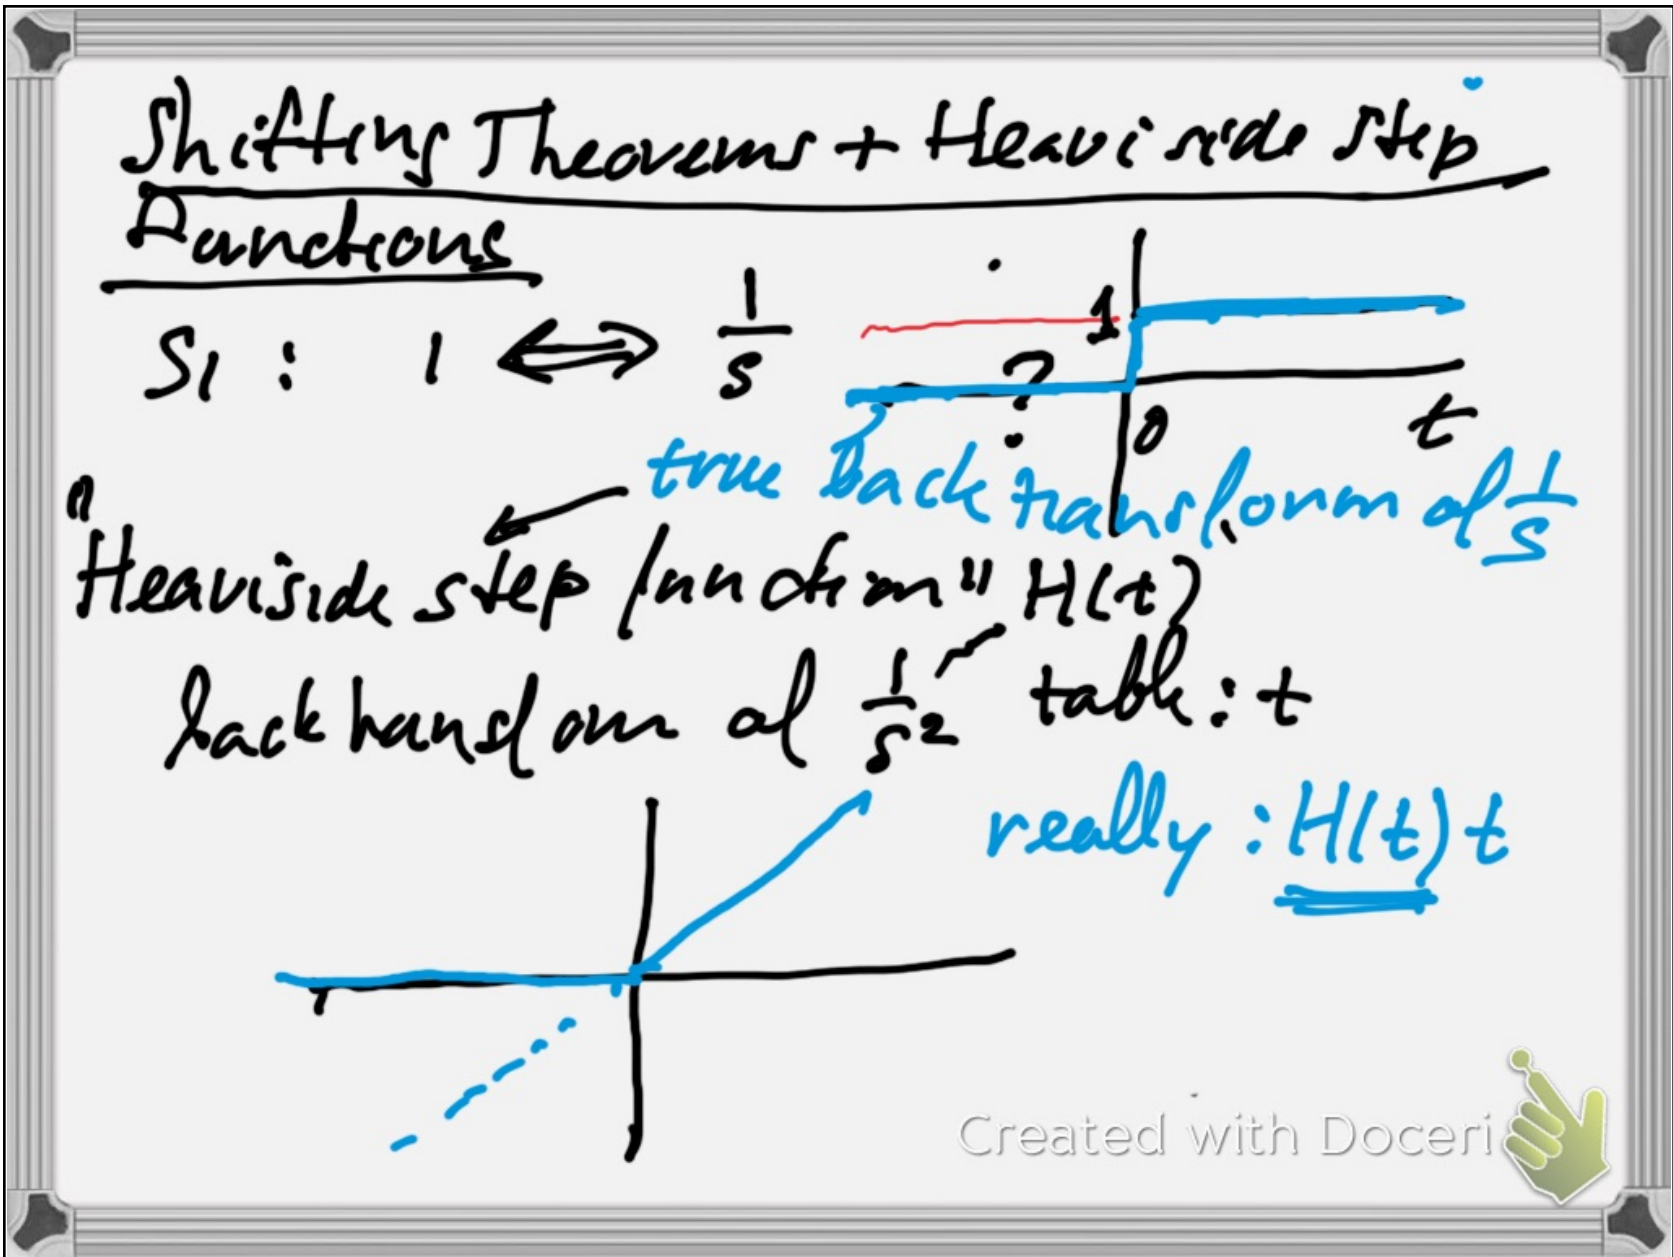 Shifting Theorems + Heaviside step
Functions
S1 : 1 ⟺ 1/s
1
?
0 t
true back transform of 1/s
"Heaviside step function" H(t)
back transform of 1/s² table : t
really : H(t) t
Created with Doceri